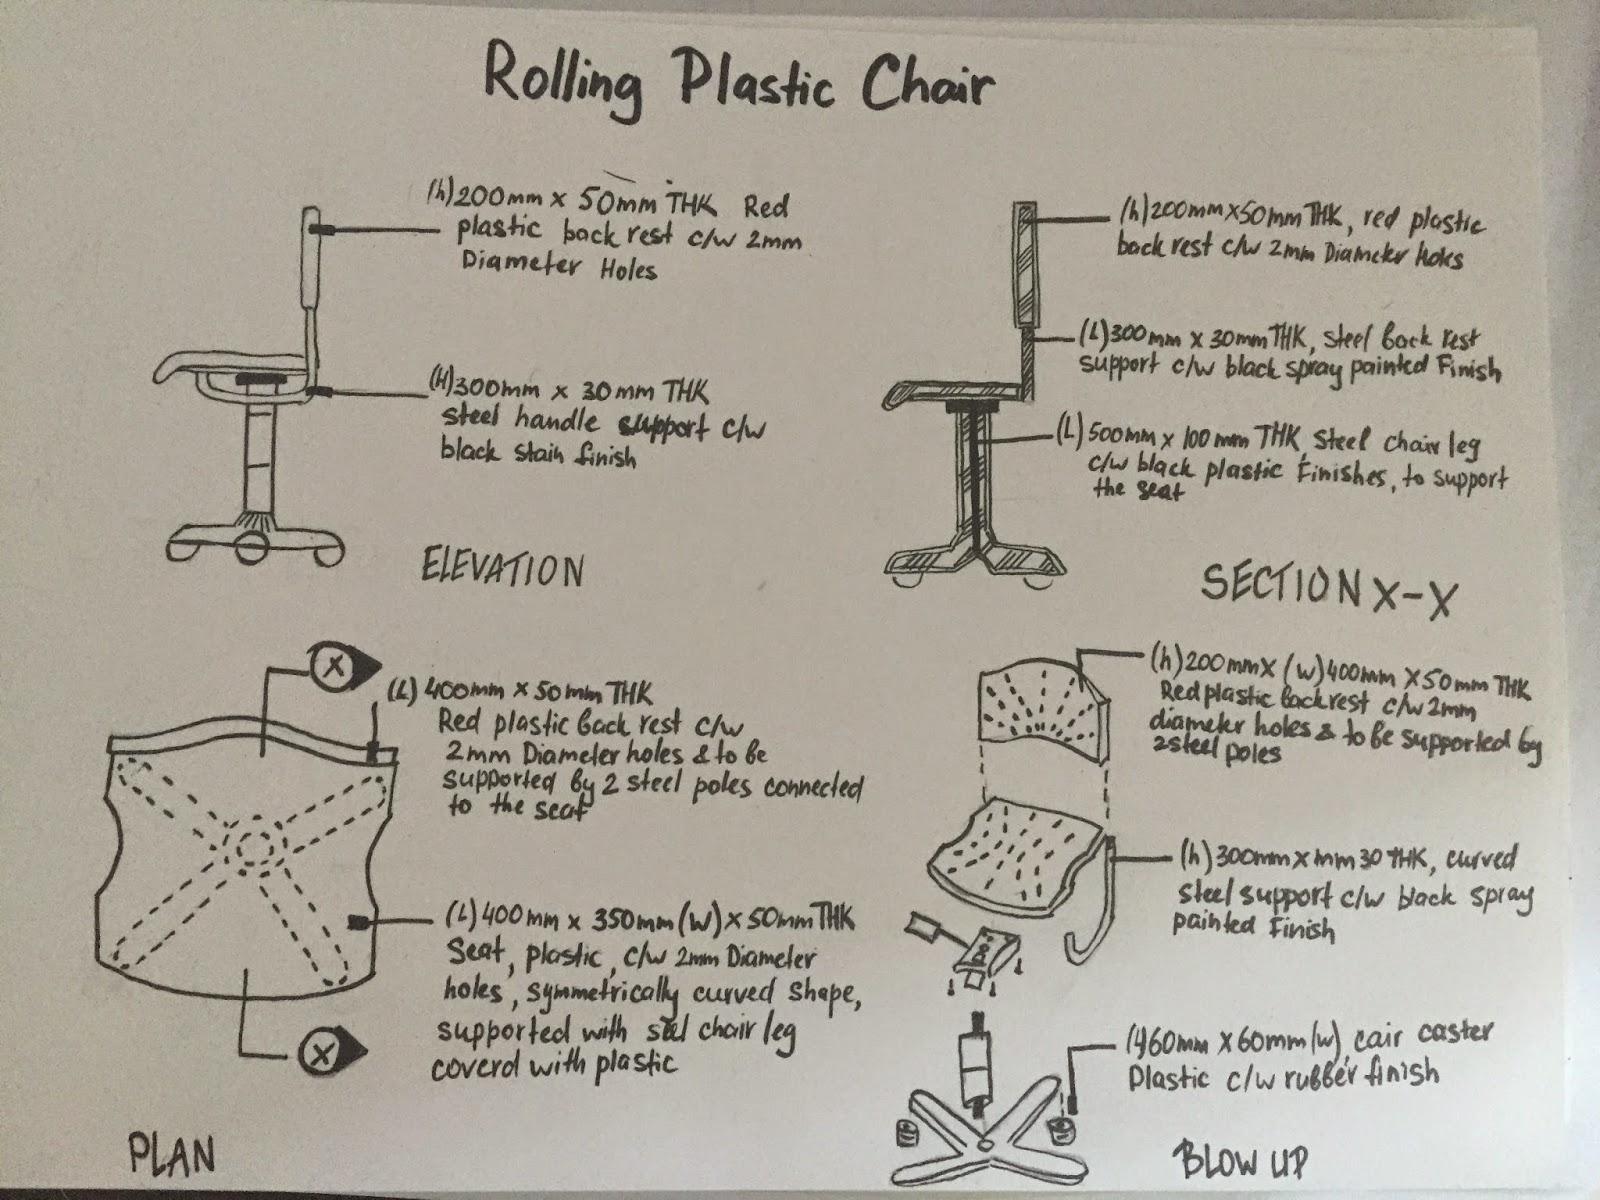 Rolling Plastic Chair
(h)200mm x 50mm THK Red
plastic back rest c/w 2mm
Diameter Holes
(H)300mm x 30mm THK
steel handle support c/w
black stain finish
ELEVATION
(h)200mmx50mmTHK, red plastic
back rest c/w 2mm Diameter holes
(L)300mm x 30mmTHK, steel back rest
support c/w black spray painted Finish
(L)500mm x 100mm THK, Steel chair leg
c/w black plastic Finishes, to support
the seat
SECTION X-X
X
(L) 400mm x 50mm THK
Red plastic back rest c/w
2mm Diameter holes & to be
supported by 2 steel poles connected
to the seat
(L)400mm x 350mm(w)x50mmTHK
Seat, plastic, c/w 2mm Diameter
holes, symmetrically curved shape,
supported with stel chair leg
coverd with plastic
X
PLAN
(h)200mmx (w)400mm x50mm THK
Red plastic back rest c/w 2mm
diameter holes & to be supported by
2 steel poles
(h)300mmxmm30THK, curved
steel support c/w black spray
painted Finish
60mm x 60mm(w), cair caster
Plastic c/w rubber finish
BLOW UP